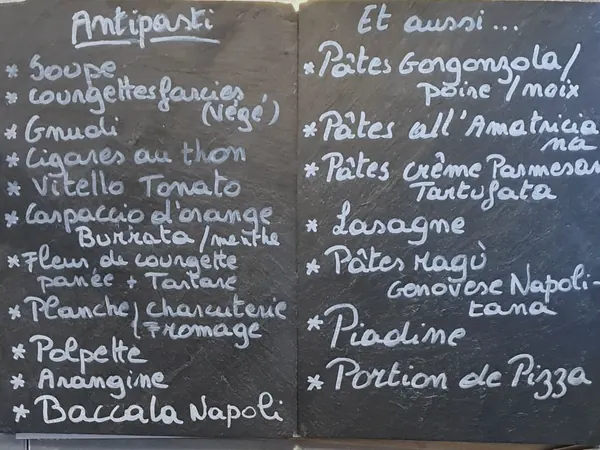 Antipasti
* Soupe
* Courgettes farcies
(végé)
* Gnudi
* Cigares au thon
* Vitello Tonato
* Carpaccio d'orange
Burrata/menthe
* Fleur de courgette
panée + Tartare
* Planche/charcuterie
/Fromage
* Polpette
* Arangine
* Baccala Napoli
Et aussi...
* Pâtes Gorgonzola/
poire/noix
* Pâtes all'Amatricia
na
* Pâtes crème Parmesan
Tartufata
* Lasagne
* Pâtes Ragù
Genovese Napoli-
tana
* Piadine
* Portion de Pizza